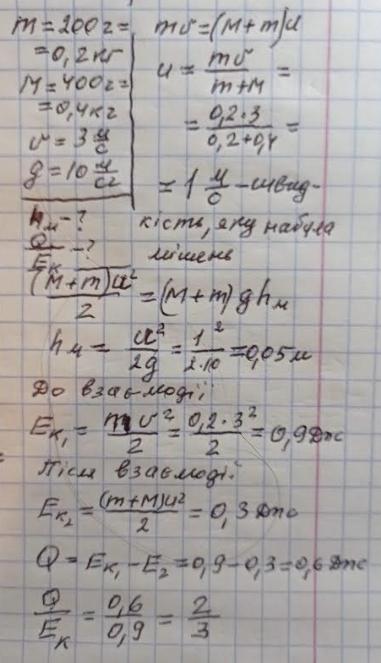 m = 200г =
= 0,2кг
M = 400г =
= 0,4кг
v = 3 м/с
g = 10 м/с²
hм - ?
Q/Eк - ?
mv = (M+m)u
u = mv/(m+M) =
= (0,2·3)/(0,2+0,4) =
= 1 м/с - швид-
кість, яку набула
мішень
(M+m)u²/2 = (M+m)ghм
hм = u²/2g = 1²/(2·10) = 0,05м
До взаємодії
Eк₁ = mv²/2 = (0,2·3²)/2 = 0,9Дж
Після взаємодії
Eк₂ = (m+M)u²/2 = 0,3Дж
Q = Eк₁ - E₂ = 0,9 - 0,3 = 0,6Дж
Q/Eк = 0,6/0,9 = 2/3